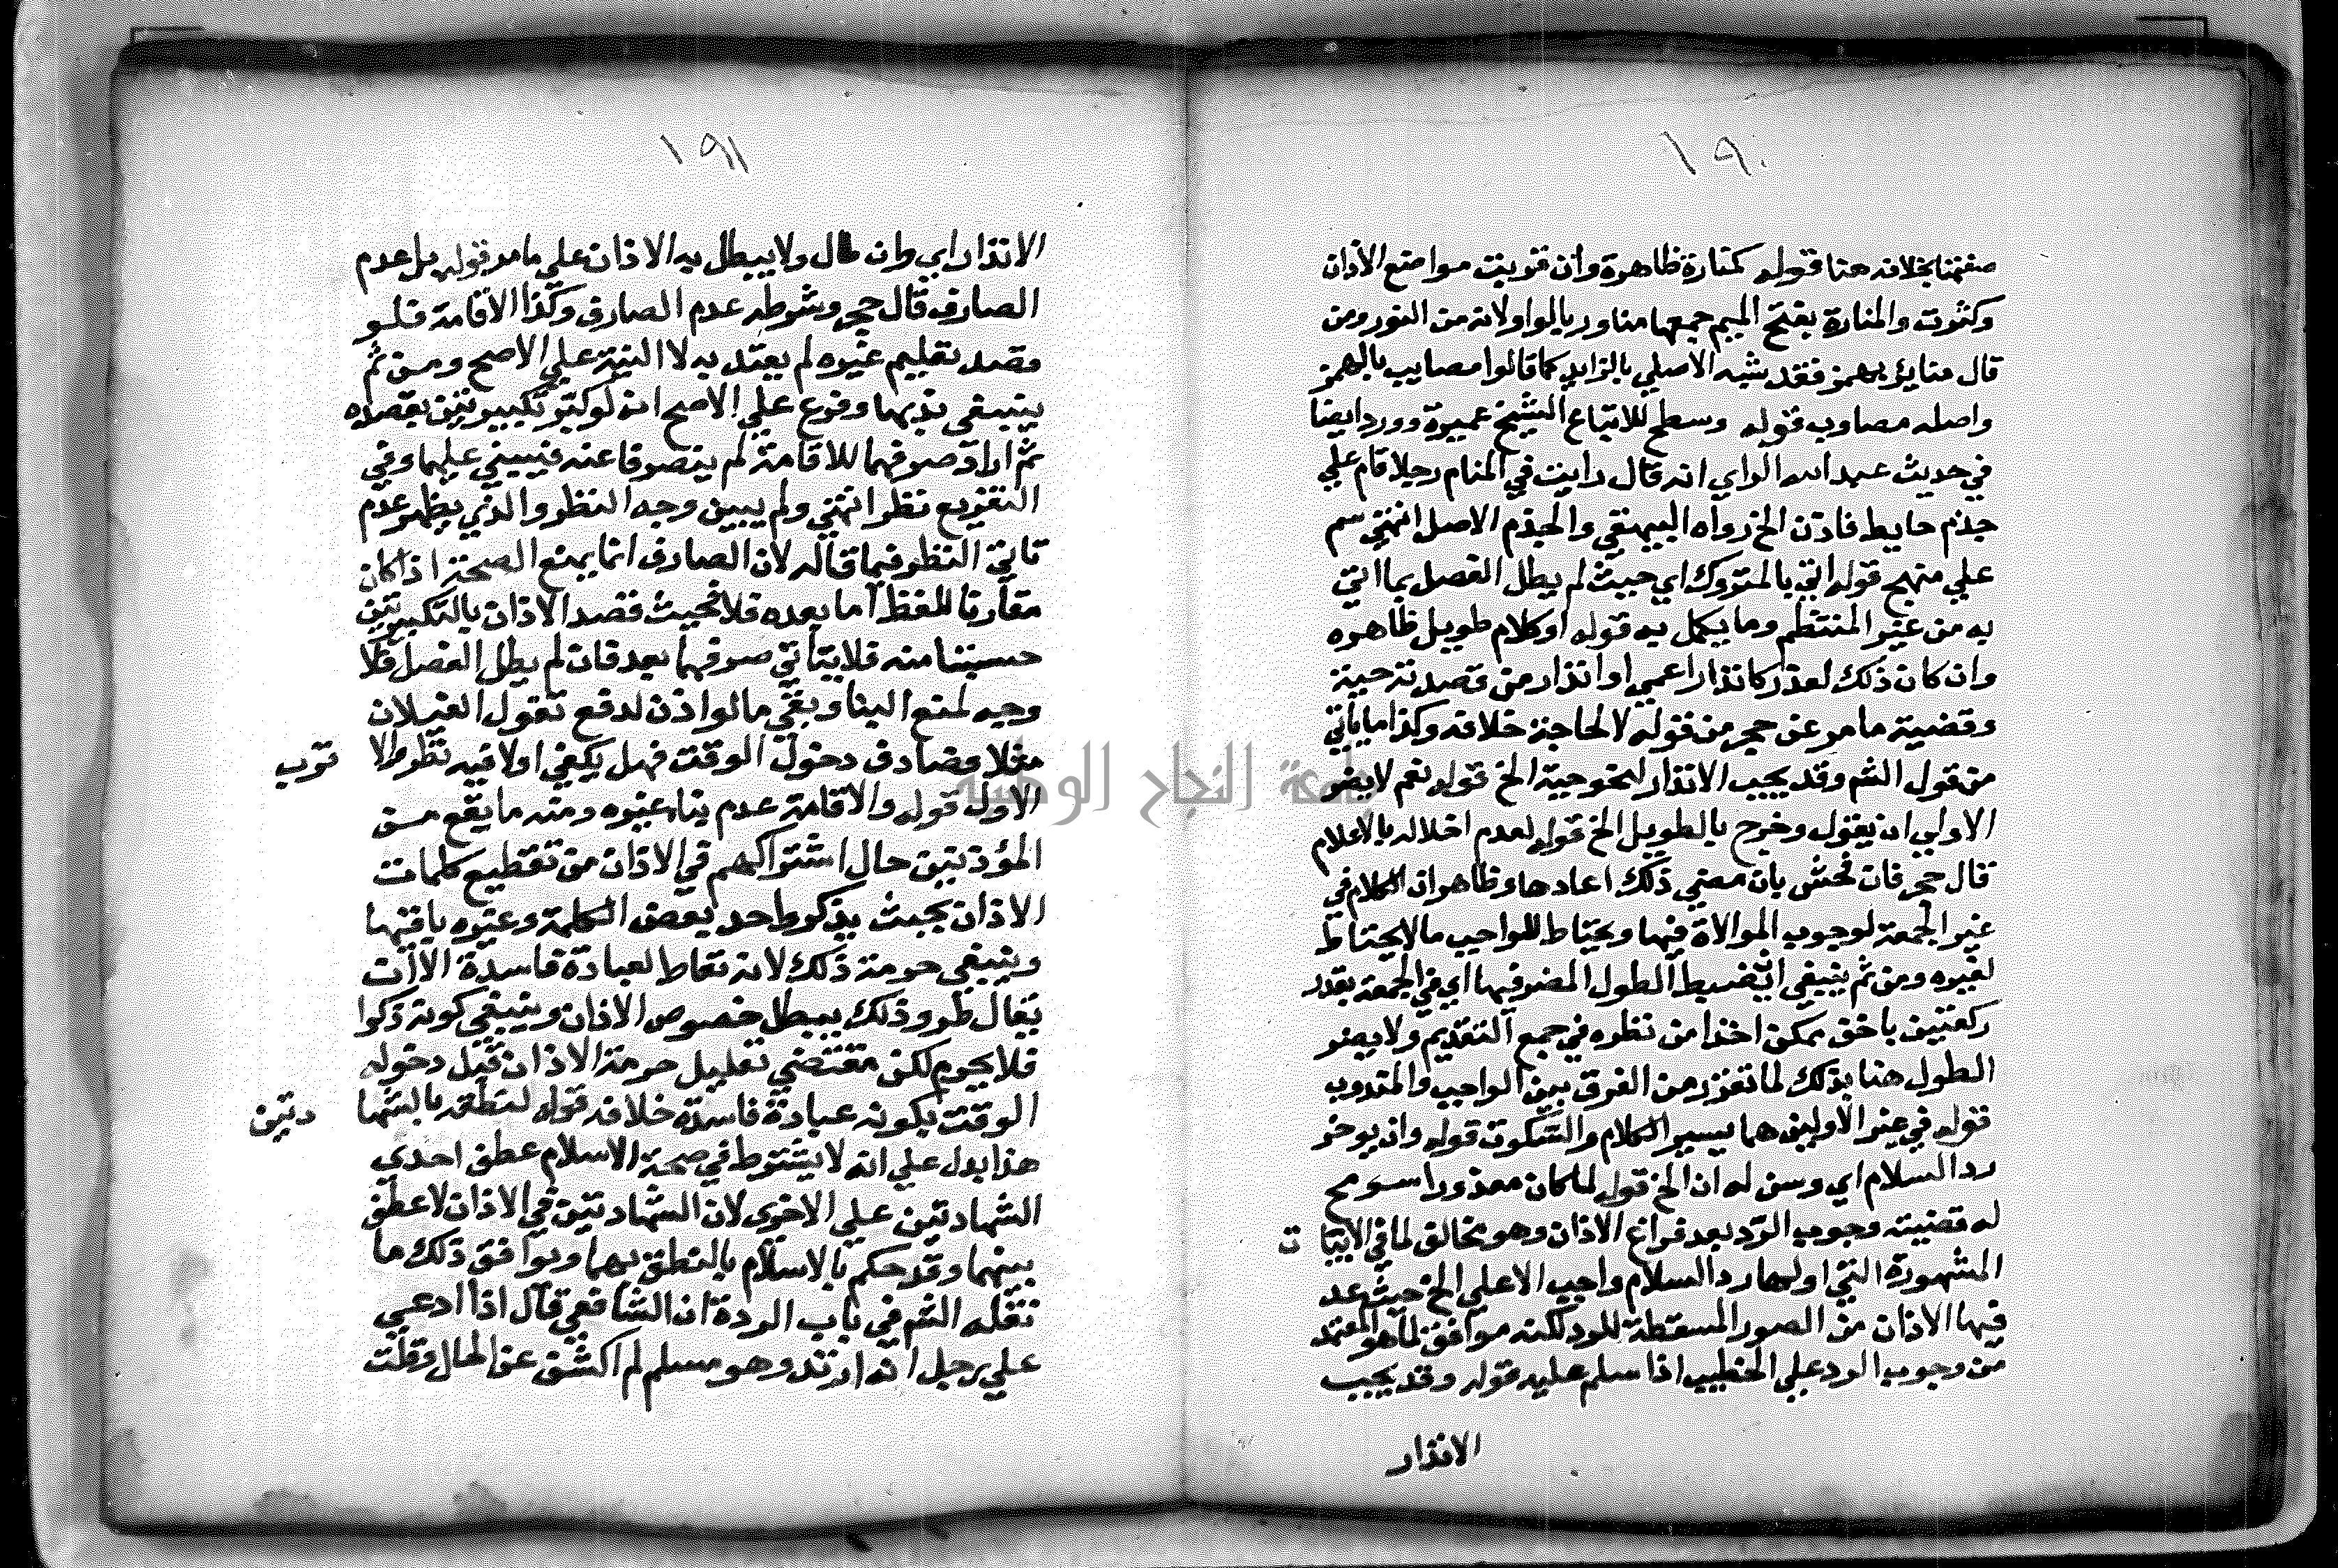 ١٩٠
صفتهما بخلافه هنا قوله كمنارة ظاهرة وان قربت مواضع الاذان
وكثرت والمنارة بفتح الميم جمعها مناور بالواو لانه من النور ومن
قال منائر بهمز فقد شبه الاصلي بالزايد كما قالوا مصايب بالهمز
واصله مصاوب قوله وسطح للاتباع الشيخ عميرة وورد ايضا
في حديث عبد الله الراي انه قال رايت في المنام رجلا قام علي
جذم حايط فاذن الخ رواه البيهقي والجذم الاصل انتهي سم
علي منهج قوله اتي بالمتروك اي حيث لم يطل الفصل بما اتي
به من غير المنتظم وما يكمل به قوله او كلام طويل ظاهره
وان كان ذلك لعذر كانذار اعمي او انذار من قصدته حية
وقضية ما مر عن حجر من قوله لا لحاجة خلافه وكذا ما ياتي
من قول الشم وقد يجب الانذار لنحو حية الخ قوله نعم لا يضر
الاولي ان يقول وخرج بالطويل الخ قوله لعدم اخلاله بالاعلام
قال حجر فان فحش بان معني ذلك اعادها وظاهر ان الكلام في
غير الجمعة لوجوب الموالاة فيها ويحتاط للواجب ما لا يحتاط
لغيره ومن ثم ينبغي ان ضبط الطول المضر فيها اي في الجمعة بقدر
ركعتين باخف ممكن اخذا من نظره في جمع التقديم ولا يضر
الطول هنا بذلك لما تقرر من الفرق بين الواجب والمندوب
قوله في غير الاولين هما يسير الكلام والسكوت قوله وان يوخر
رد السلام اي وسن له ان الخ قوله لما كان معذورا سومح
له قضيته وجوب الرد بعد فراغ الاذان وهو مخالف لما في الابيا ت
المشهورة التي اولها رد السلام واجب الا علي الخ حيث عد
فيها الاذان من الصور المسقطة للرد لكنه موافق لما هو المعتمد
من وجوب الرد علي الخطيب اذا سلم عليه قوله وقد يجب
الانذار
١٩١
الانذار اي وان طال ولا يبطل به الاذان علي ما مر قوله بل عدم
الصارف قال حجر وشرطه عدم الصارف وكذا الاقامة فلو
قصد تعليم غيره لم يعتد به لا النية علي الاصح ومن ثم
ينبغي ندبها وفرع علي الاصح انه لو كبر تكبيرتين بقصده
ثم اراد صرفهما للاقامة لم ينصرفا عنه فيبني عليهما وفي
التفريع نظر انتهي ولم يبين وجه النظر والذي يظهر عدم
تاتي النظر فيما قاله لان الصارف انما يمنع الصحة اذا كان
مقارنا للفظ اما بعده فلا فحيث قصد الاذان بالتكبيرتين
حسبتا منه فلا يتاتي صرفهما بعد فان لم يطل الفصل فلا
وجه لمنع البنا وبقي ما لو اذن لدفع تغول الغيلان
مثلا وصادف دخول الوقت فهل يكفي او لا فيه نظر والا قرب
الاول قوله والاقامة عدم بناء غيره ومنه ما يقع من
المؤذنين حال اشتراكهم في الاذان من تقطيع كلمات
الاذان بحيث يذكر واحد بعض الكلمة وغيره باقيها
وينبغي حرمة ذلك لانه تعاط لعبادة فاسدة الا ان
يقال طرو ذلك يبطل خصوص الاذان وينبغي كونه ذكرا
فلا يحرم لكن مقتضي تعليل حرمة الاذان قبل دخول
الوقت بكونه عبادة فاسدة خلافه قوله لنطقه بالشها دتين
هذا يدل علي انه لا يشترط في صحة الاسلام عطف احدي
الشهادتين علي الاخري لان الشهادتين في الاذان لا عطف
بينهما وقد حكم بالاسلام بالنطق بهما ويوافق ذلك ما
نقله الشم في باب الردة ان الشافعي قال اذا ادعي
علي رجل انه ارتد وهو مسلم لم اكشف عن الحال وقلت
جامعة النجاح الوطنية